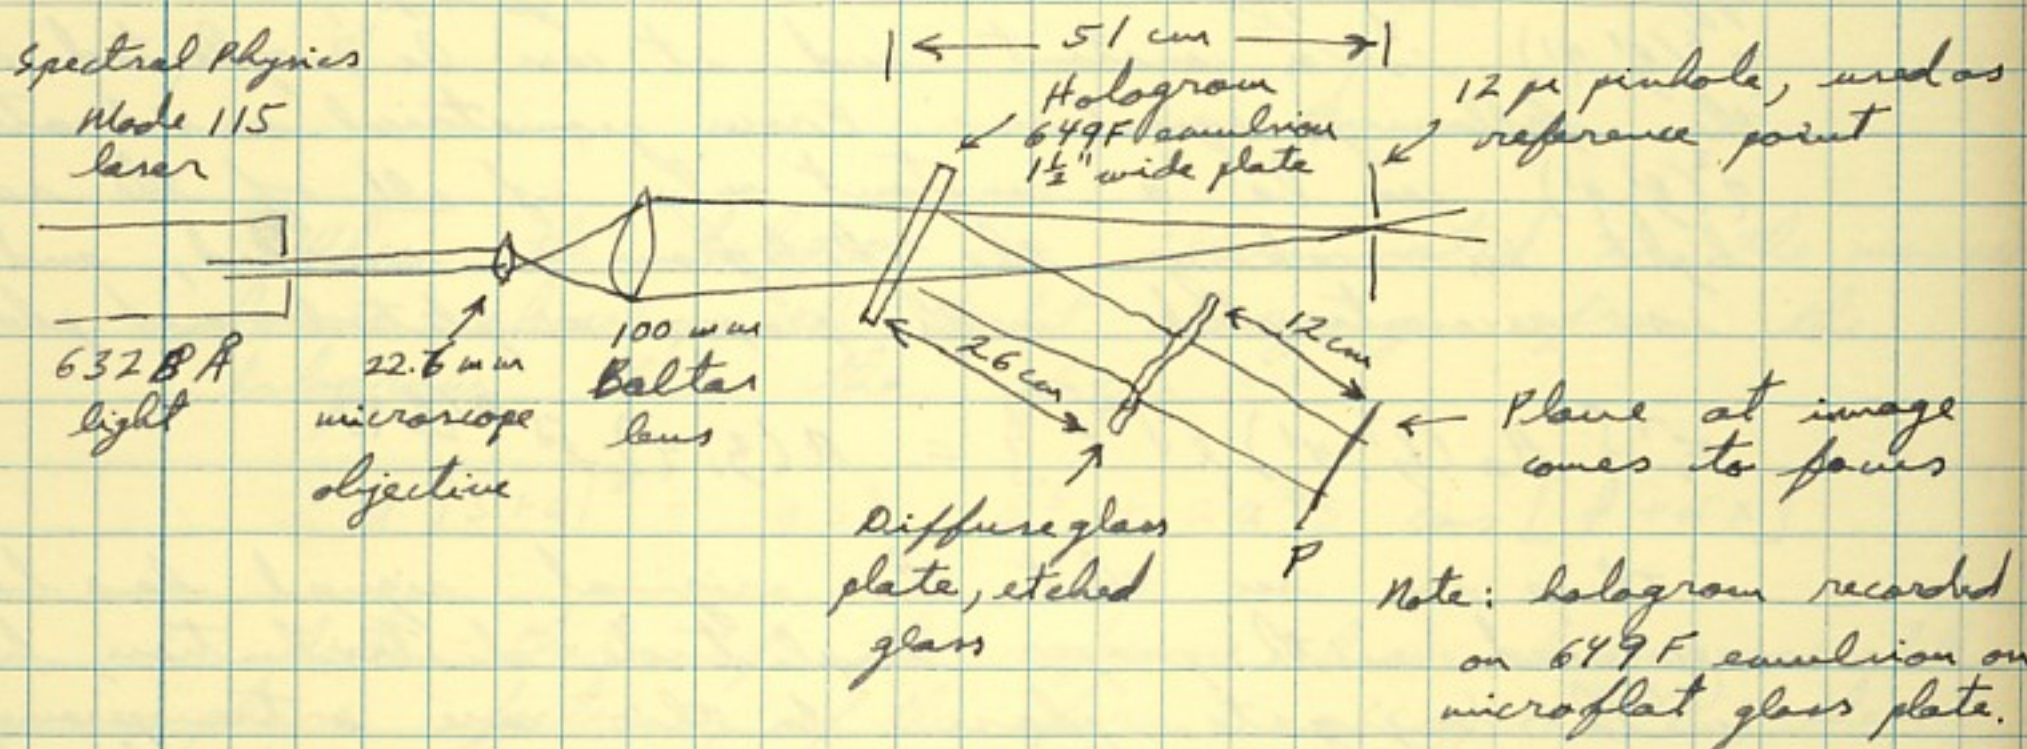 Spectral Physics
Mode 115
laser
6328 Å
light
22.6 mm
microscope
objective
100 mm
Baltar
lens
51 cm
Hologram
649F emulsion
1½" wide plate
12 μ pinhole, used as
reference point
26 cm
12 cm
Diffuse glass
plate, etched
glass
Plane at image
comes to focus
P
Note: hologram recorded
on 649F emulsion on
microflat glass plate.